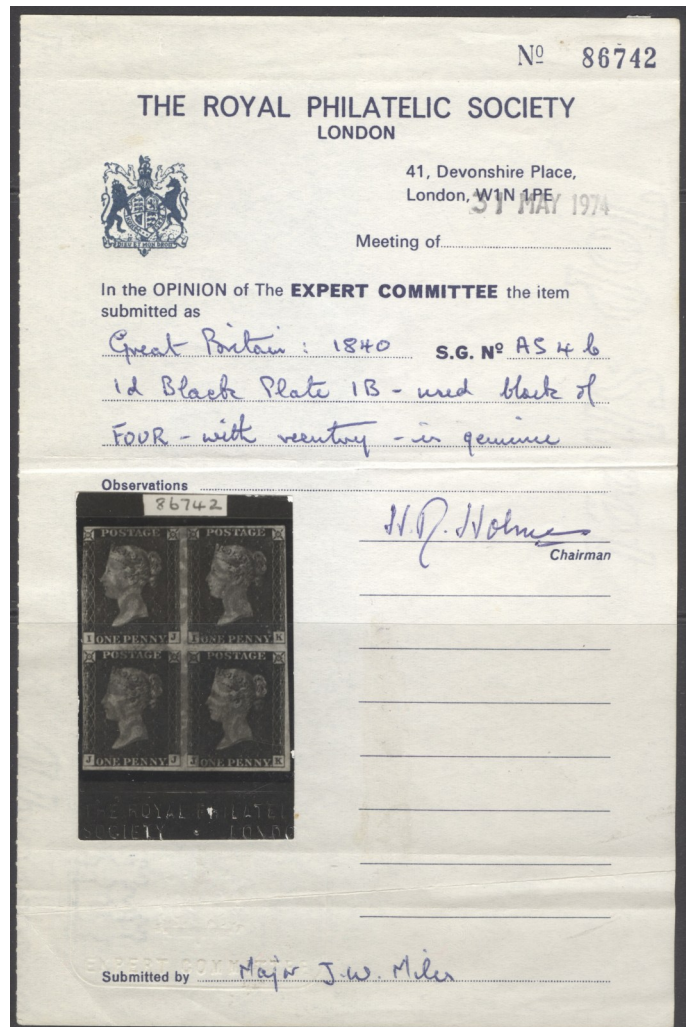 Nº 86742
THE ROYAL PHILATELIC SOCIETY
LONDON
41, Devonshire Place,
London, W1N 1PE
31 MAY 1974
Meeting of
DIEU ET MON DROIT
In the OPINION of The EXPERT COMMITTEE the item
submitted as
Great Britain : 1840 S.G. Nº AS 4 b
1d Black Plate 1B - used block of
FOUR - with reentry - is genuine
Observations
86742
H.R. Holmes
Chairman
POSTAGE POSTAGE
I ONE PENNY J I ONE PENNY K
POSTAGE POSTAGE
J ONE PENNY J J ONE PENNY K
THE ROYAL PHILATELI
SOCIETY LONDO
EXPERT COMMITTEE
Submitted by Major J.W. Miles